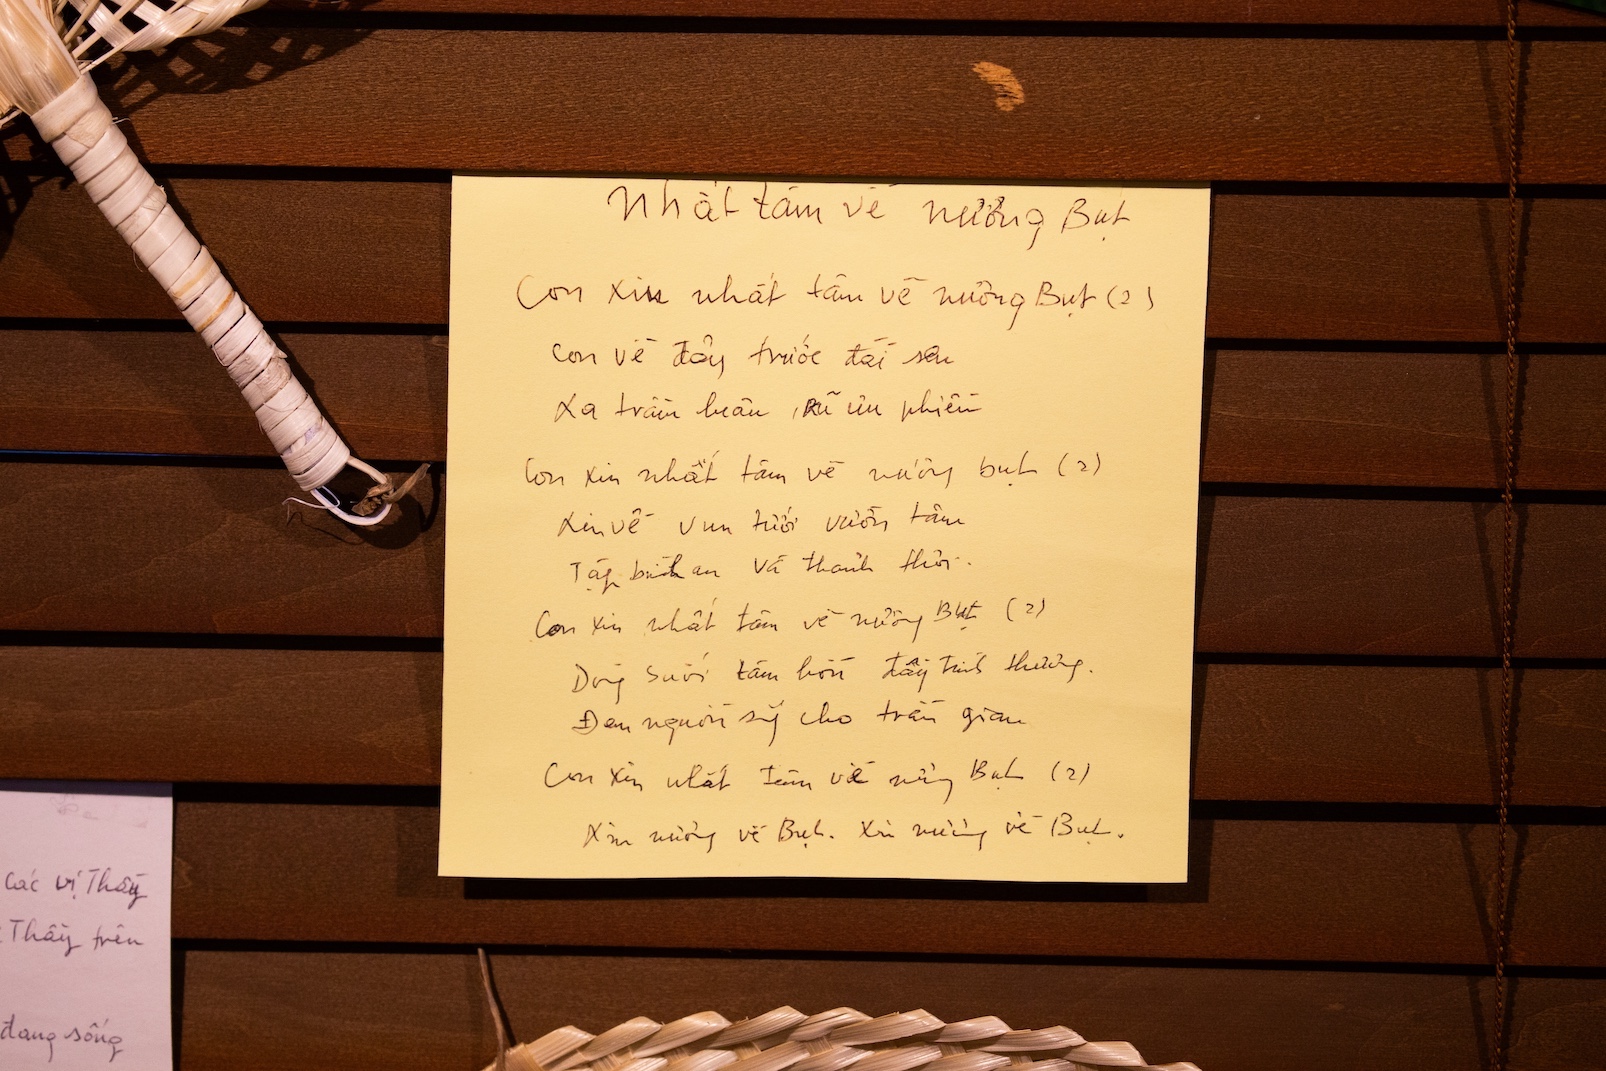 Nhất tâm về nương Bụt
Con xin nhất tâm về nương Bụt (2)
Con về đây trước đài sen
Xa trầm luân, rũ ưu phiền
Con xin nhất tâm về nương bụt (2)
Xin về vun tưới vườn tâm
Tập bình an và thảnh thơi.
Con xin nhất tâm về nương Bụt (2)
Dòng suối tâm hồn đầy tình thương.
Đem nguồn sống cho trần gian
Con xin nhất tâm về nương Bụt (2)
Xin nương về Bụt. Xin nương về Bụt.
các vị Thầy
Thầy trên
đang sống